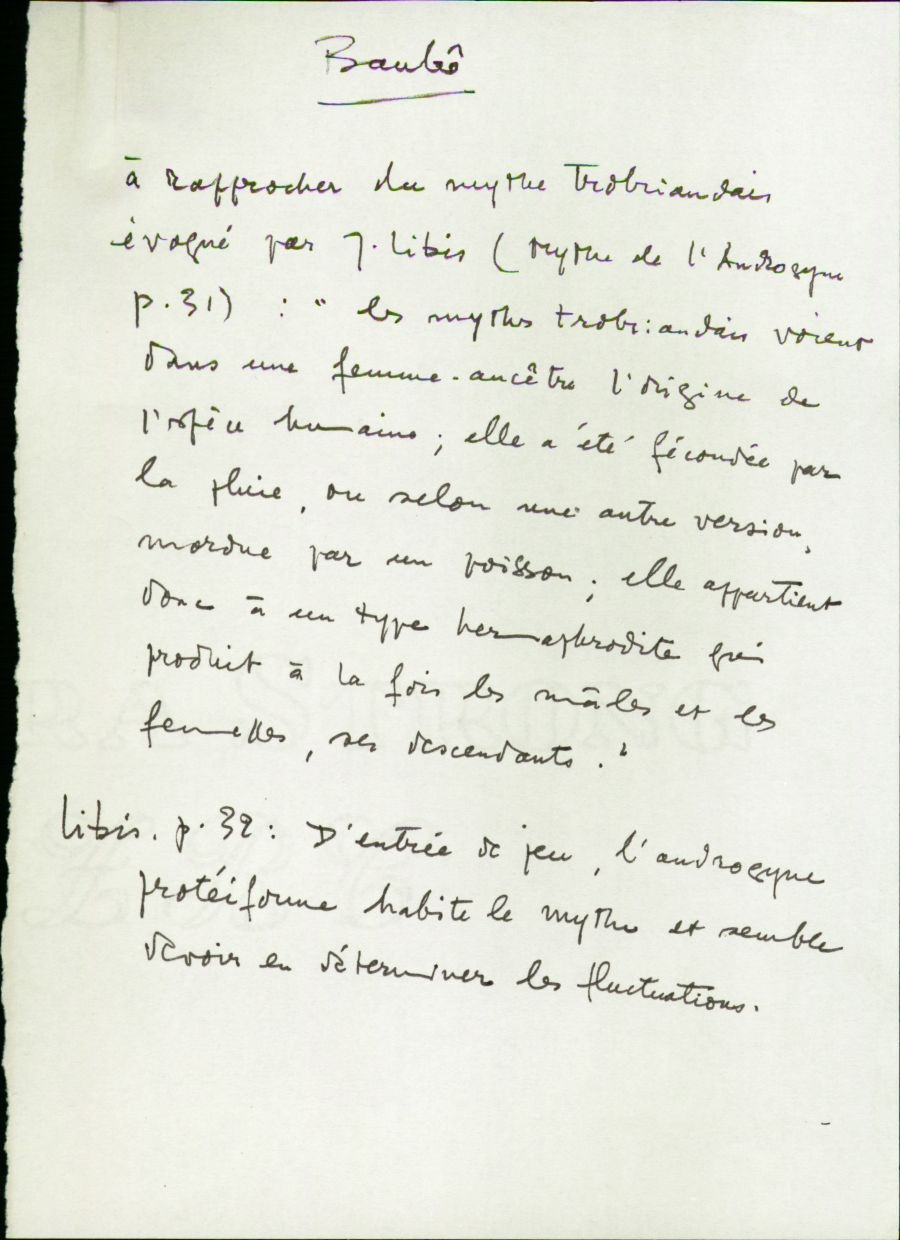 Baubô
à rapprocher du mythe trobriandais
évoqué par J. Libis (Mythe de l'Androgyne
p. 31) : " les mythes trobriandais voient
dans une femme-ancêtre l'origine de
l'espèce humaine ; elle a été fécondée par
la pluie, ou selon une autre version,
mordue par un poisson ; elle appartient
donc à un type hermaphrodite qui
produit à la fois les mâles et les
femelles, ses descendants. "
Libis. p. 32 : D'entrée de jeu, l'androgyne
protéiforme habite le mythe et semble
devoir en déterminer les fluctuations.